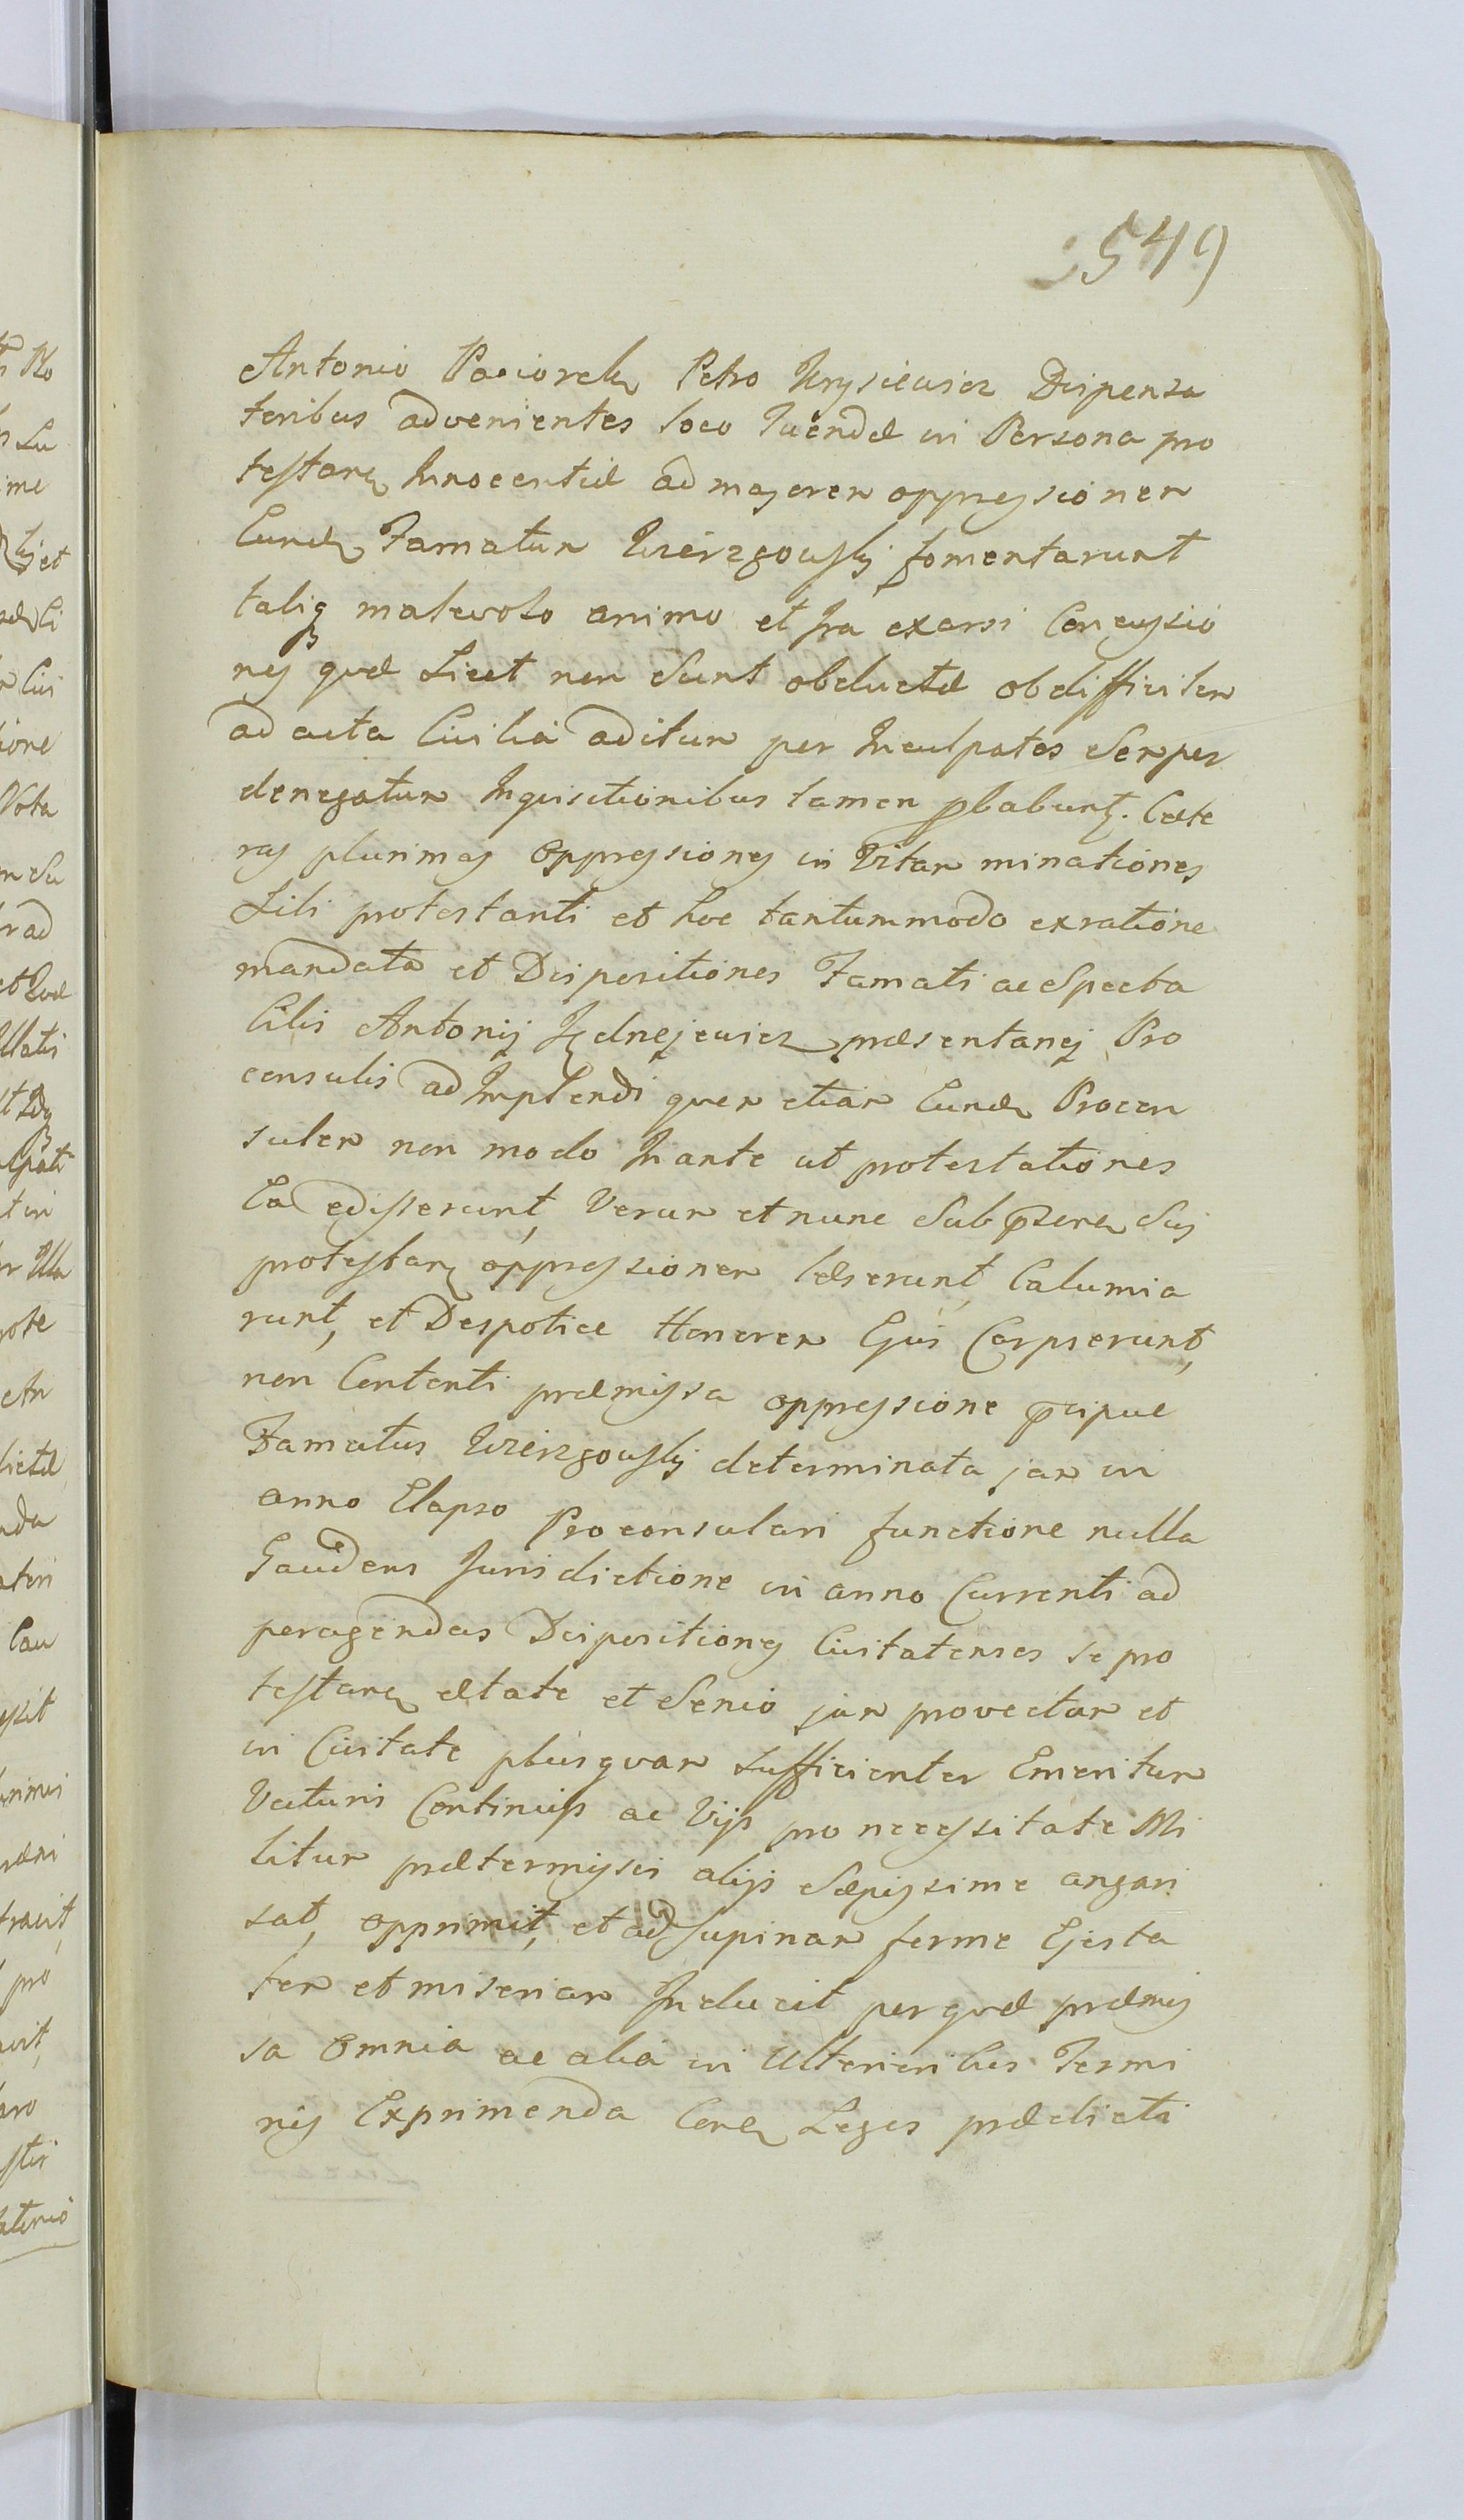 549
Antonio Paciorek Petro Krysiewicz Dispensa
toribus advenientes loco Tuendæ in Persona pro
testan Innocentiæ ad majorem oppressionem
Eund Famatum Wierzgowski fomentarunt
taliq malevolo animo et Ira exarsi Concussio
nes quæ Licet non Sunt obductæ ob difficilem
ad acta Civilia aditum per Inculpatos Semper
denegatum Inquisitionibus tamen pbabunt. Cæte
ras plurimas oppressiones in Vitam minationes
Sibi protestanti et hoc tantummodo ex ratione
mandata et Dispositiones Famati ac Specta
bilis Antonij Jędrzejewicz præsentanej Pro
consulis adImplendi quem etiam Eund Procon
sulem non modo In ante ut protestationes
Ea edisserunt, Verum et nunc Sub psens Suj
protestan oppressionem læserunt, Calumia
runt, et Despotice Honorem Ejus Carpserunt,
non Contenti præmissa oppressione pcipue
Famatus Wierzgowski determinata jam in
anno Elapso Proconsulari functione nulla
Gaudens Jurisdictione in anno Currenti ad
peragendas Dispositiones Civitatenses se pro
testan ætate et Senio jam provectum et
in Civitate plusquam sufficienter Emeritum
Vecturis Continuis ac Vijs pro necessitate Mi
litum prætermissis alijs Sæpissime angari
sat, opprimit, et ad supinam ferme Egesta
tem et miseriam Inducit per quæ præmis
sa Omnia ac alia in Ulterioribus Termi
nis Exprimenda Cont Leges prædicti